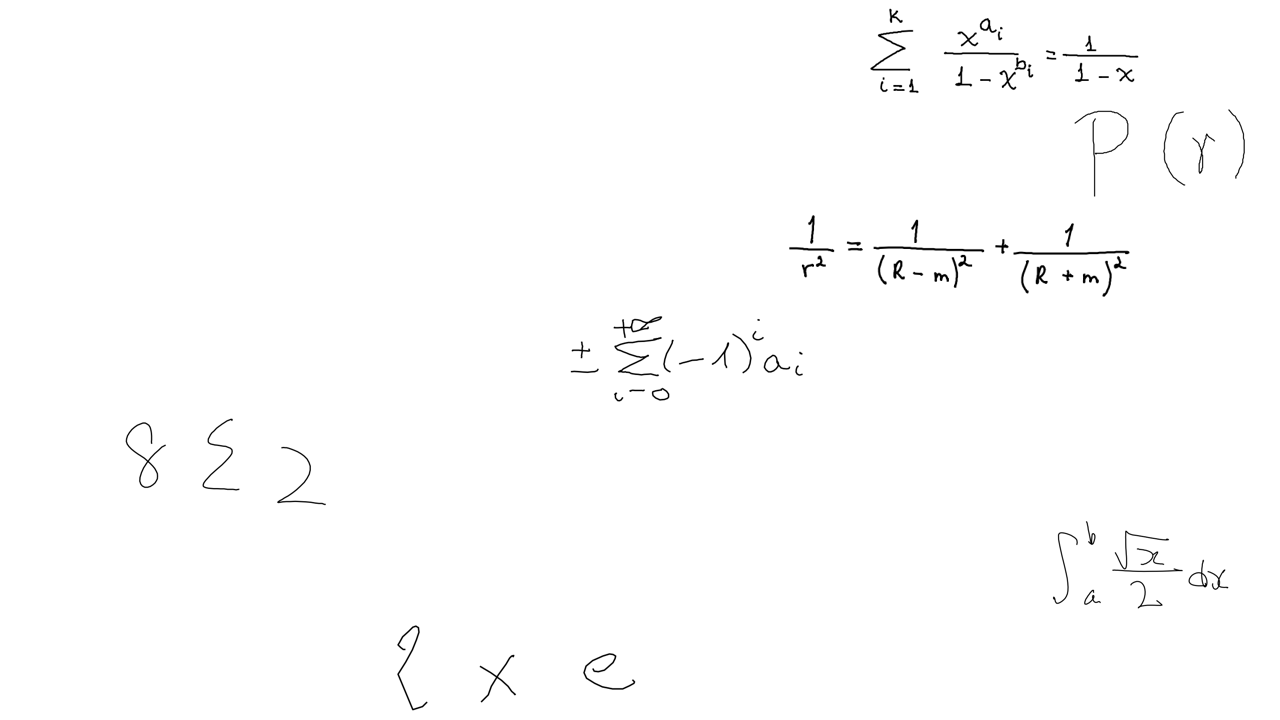 \sum_{i=1}^{k} \frac{x^{a_i}}{1-x^{b_i}} = \frac{1}{1-x}
P(r)
\frac{1}{r^2} = \frac{1}{(R-m)^2} + \frac{1}{(R+m)^2}
\pm \sum_{i=0}^{+\infty} (-1)^i a_i
8 \{ 2
\int_a^b \frac{\sqrt{x}}{2} dx
\{ x e